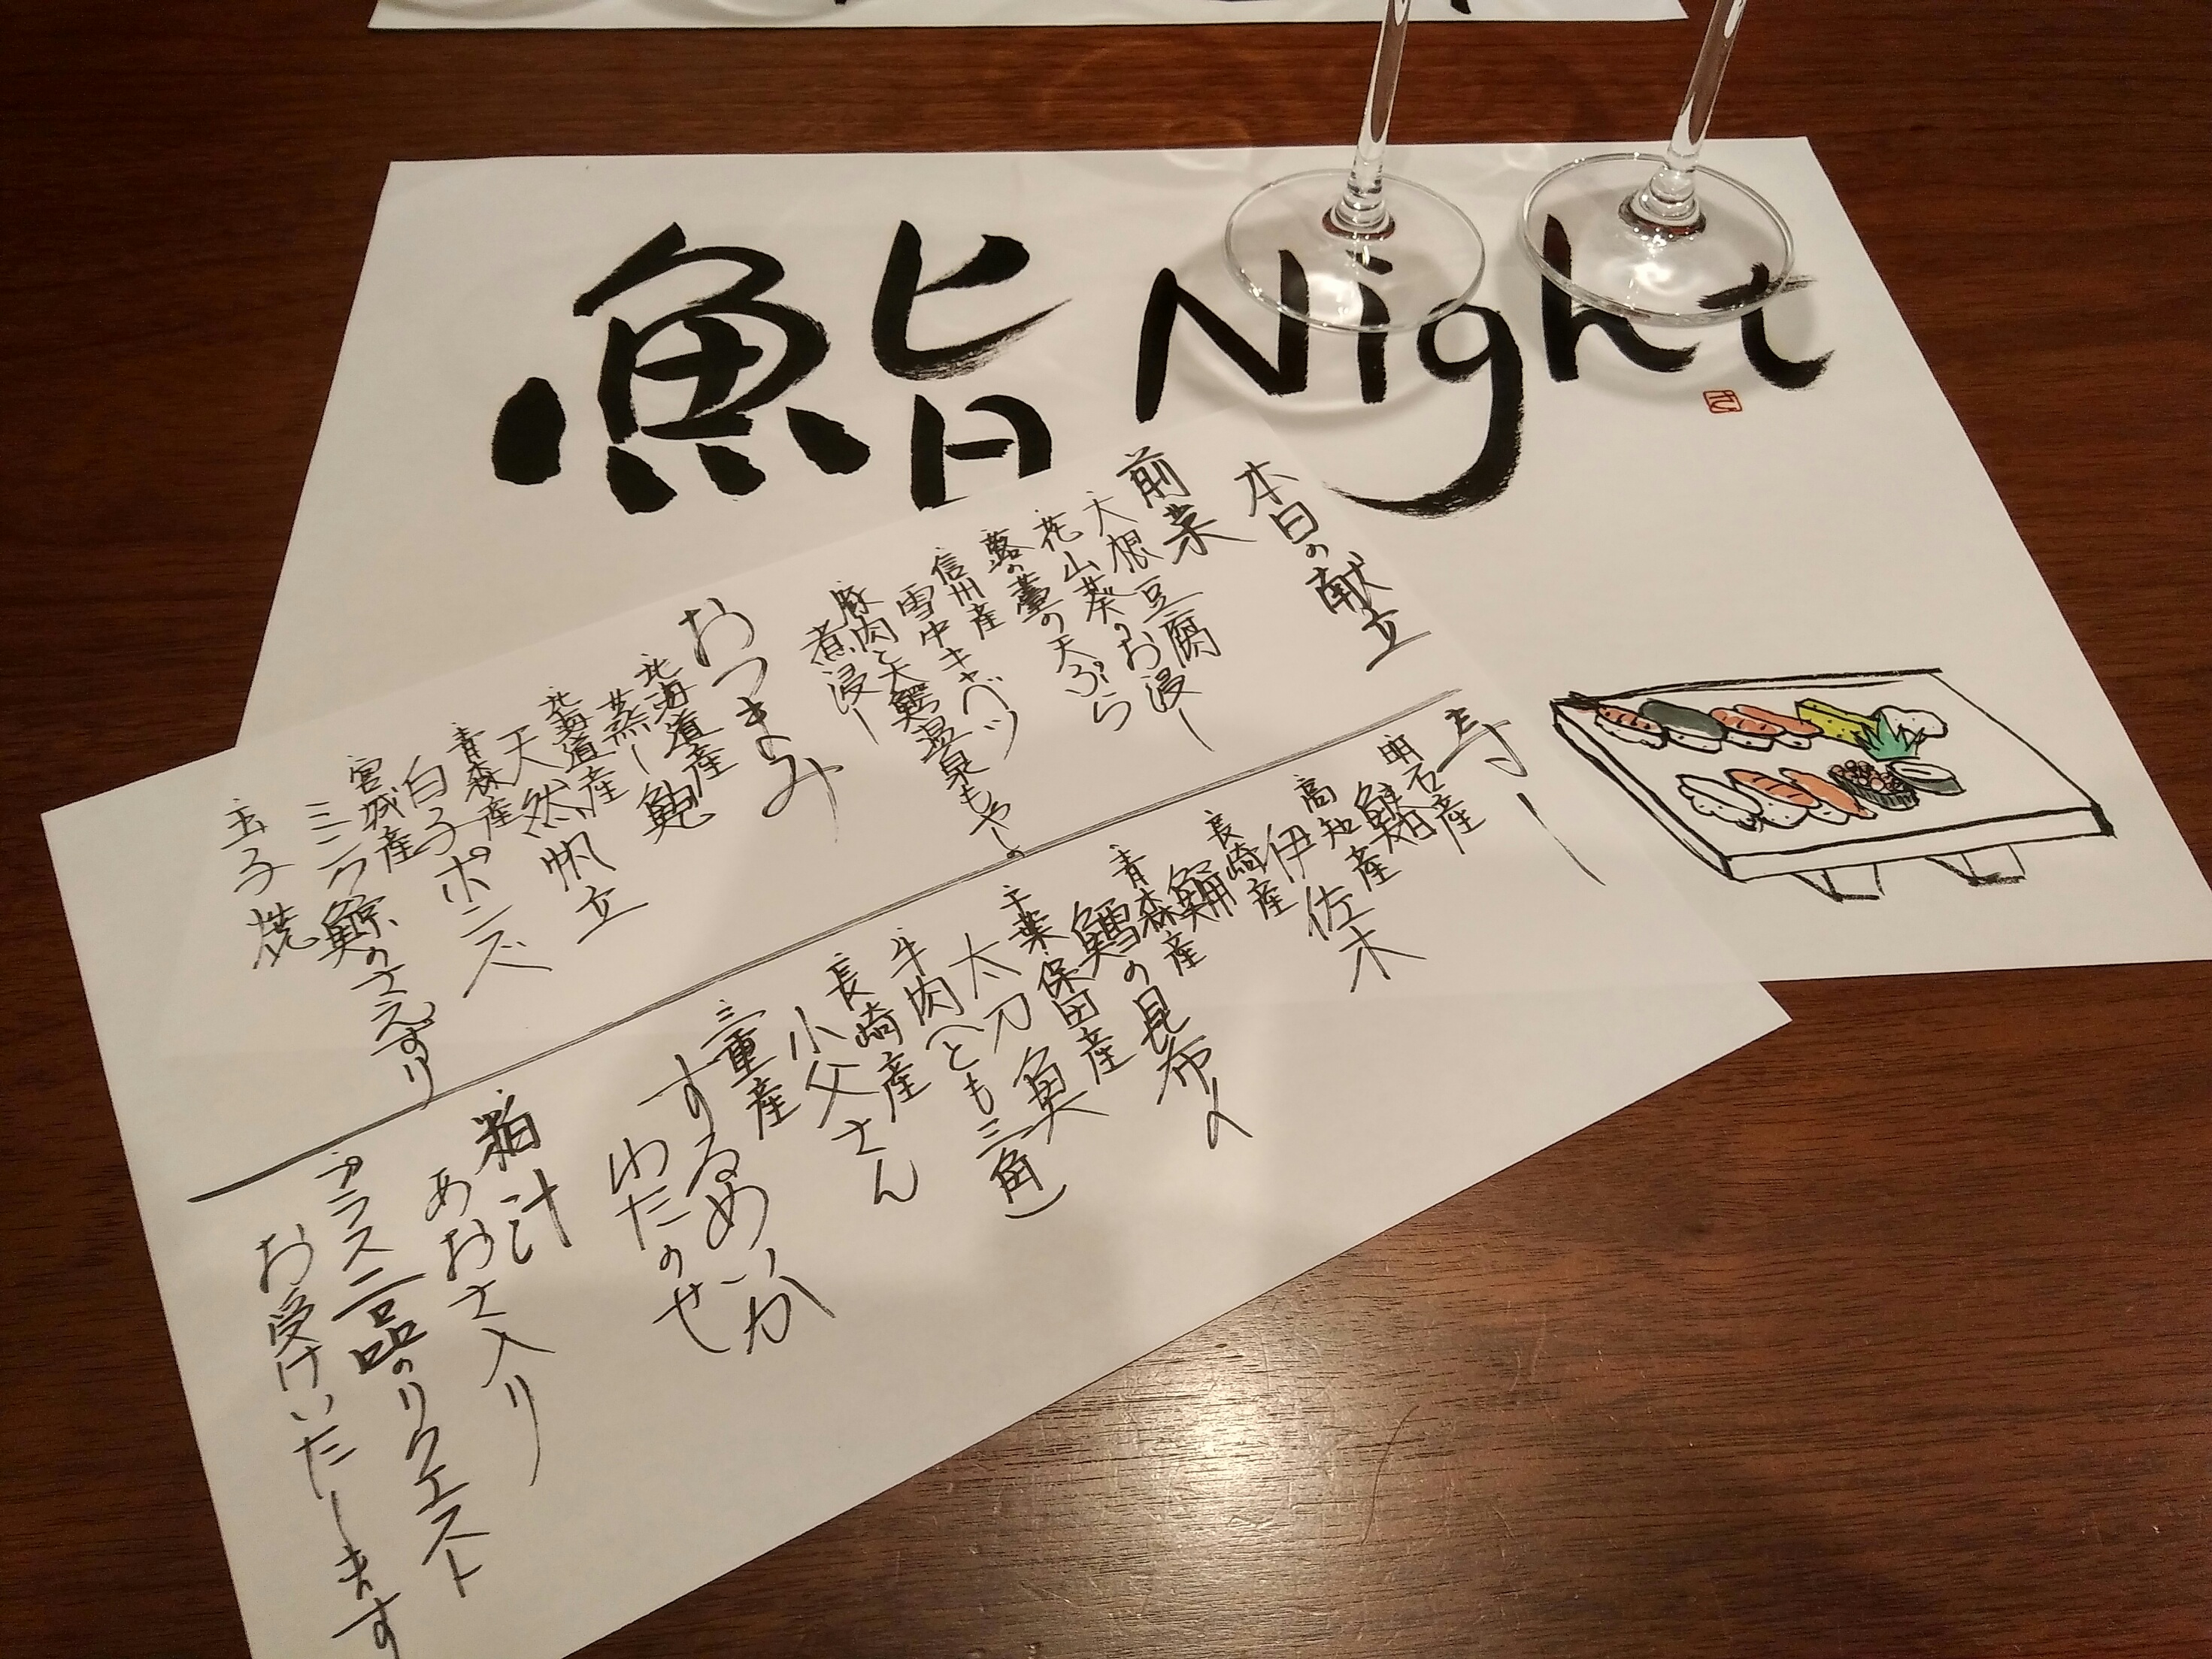 鮨 Night
本日の献立
前菜
大根豆腐
花山葵のお浸し
蕗の薹の天ぷら
信州産
雪中キャベツ
豚肉と大鰐温泉もやしの
煮浸し
おつまみ
北海道産
蒸し鮑
北海道産
天然帆立
青森産
白子ポン酢
宮城産
ミンク鯨のさえずり
玉子焼
寿し
明石産
高知産
伊佐木
長崎産
青森産
鱈の昆布〆
千葉・保田産
太刀魚
牛肉(とも三角)
長崎産
小父さん
三重産
するめいか
わたのせ
粕汁
あおさ入り
プラス二品のリクエスト
お受けいたします